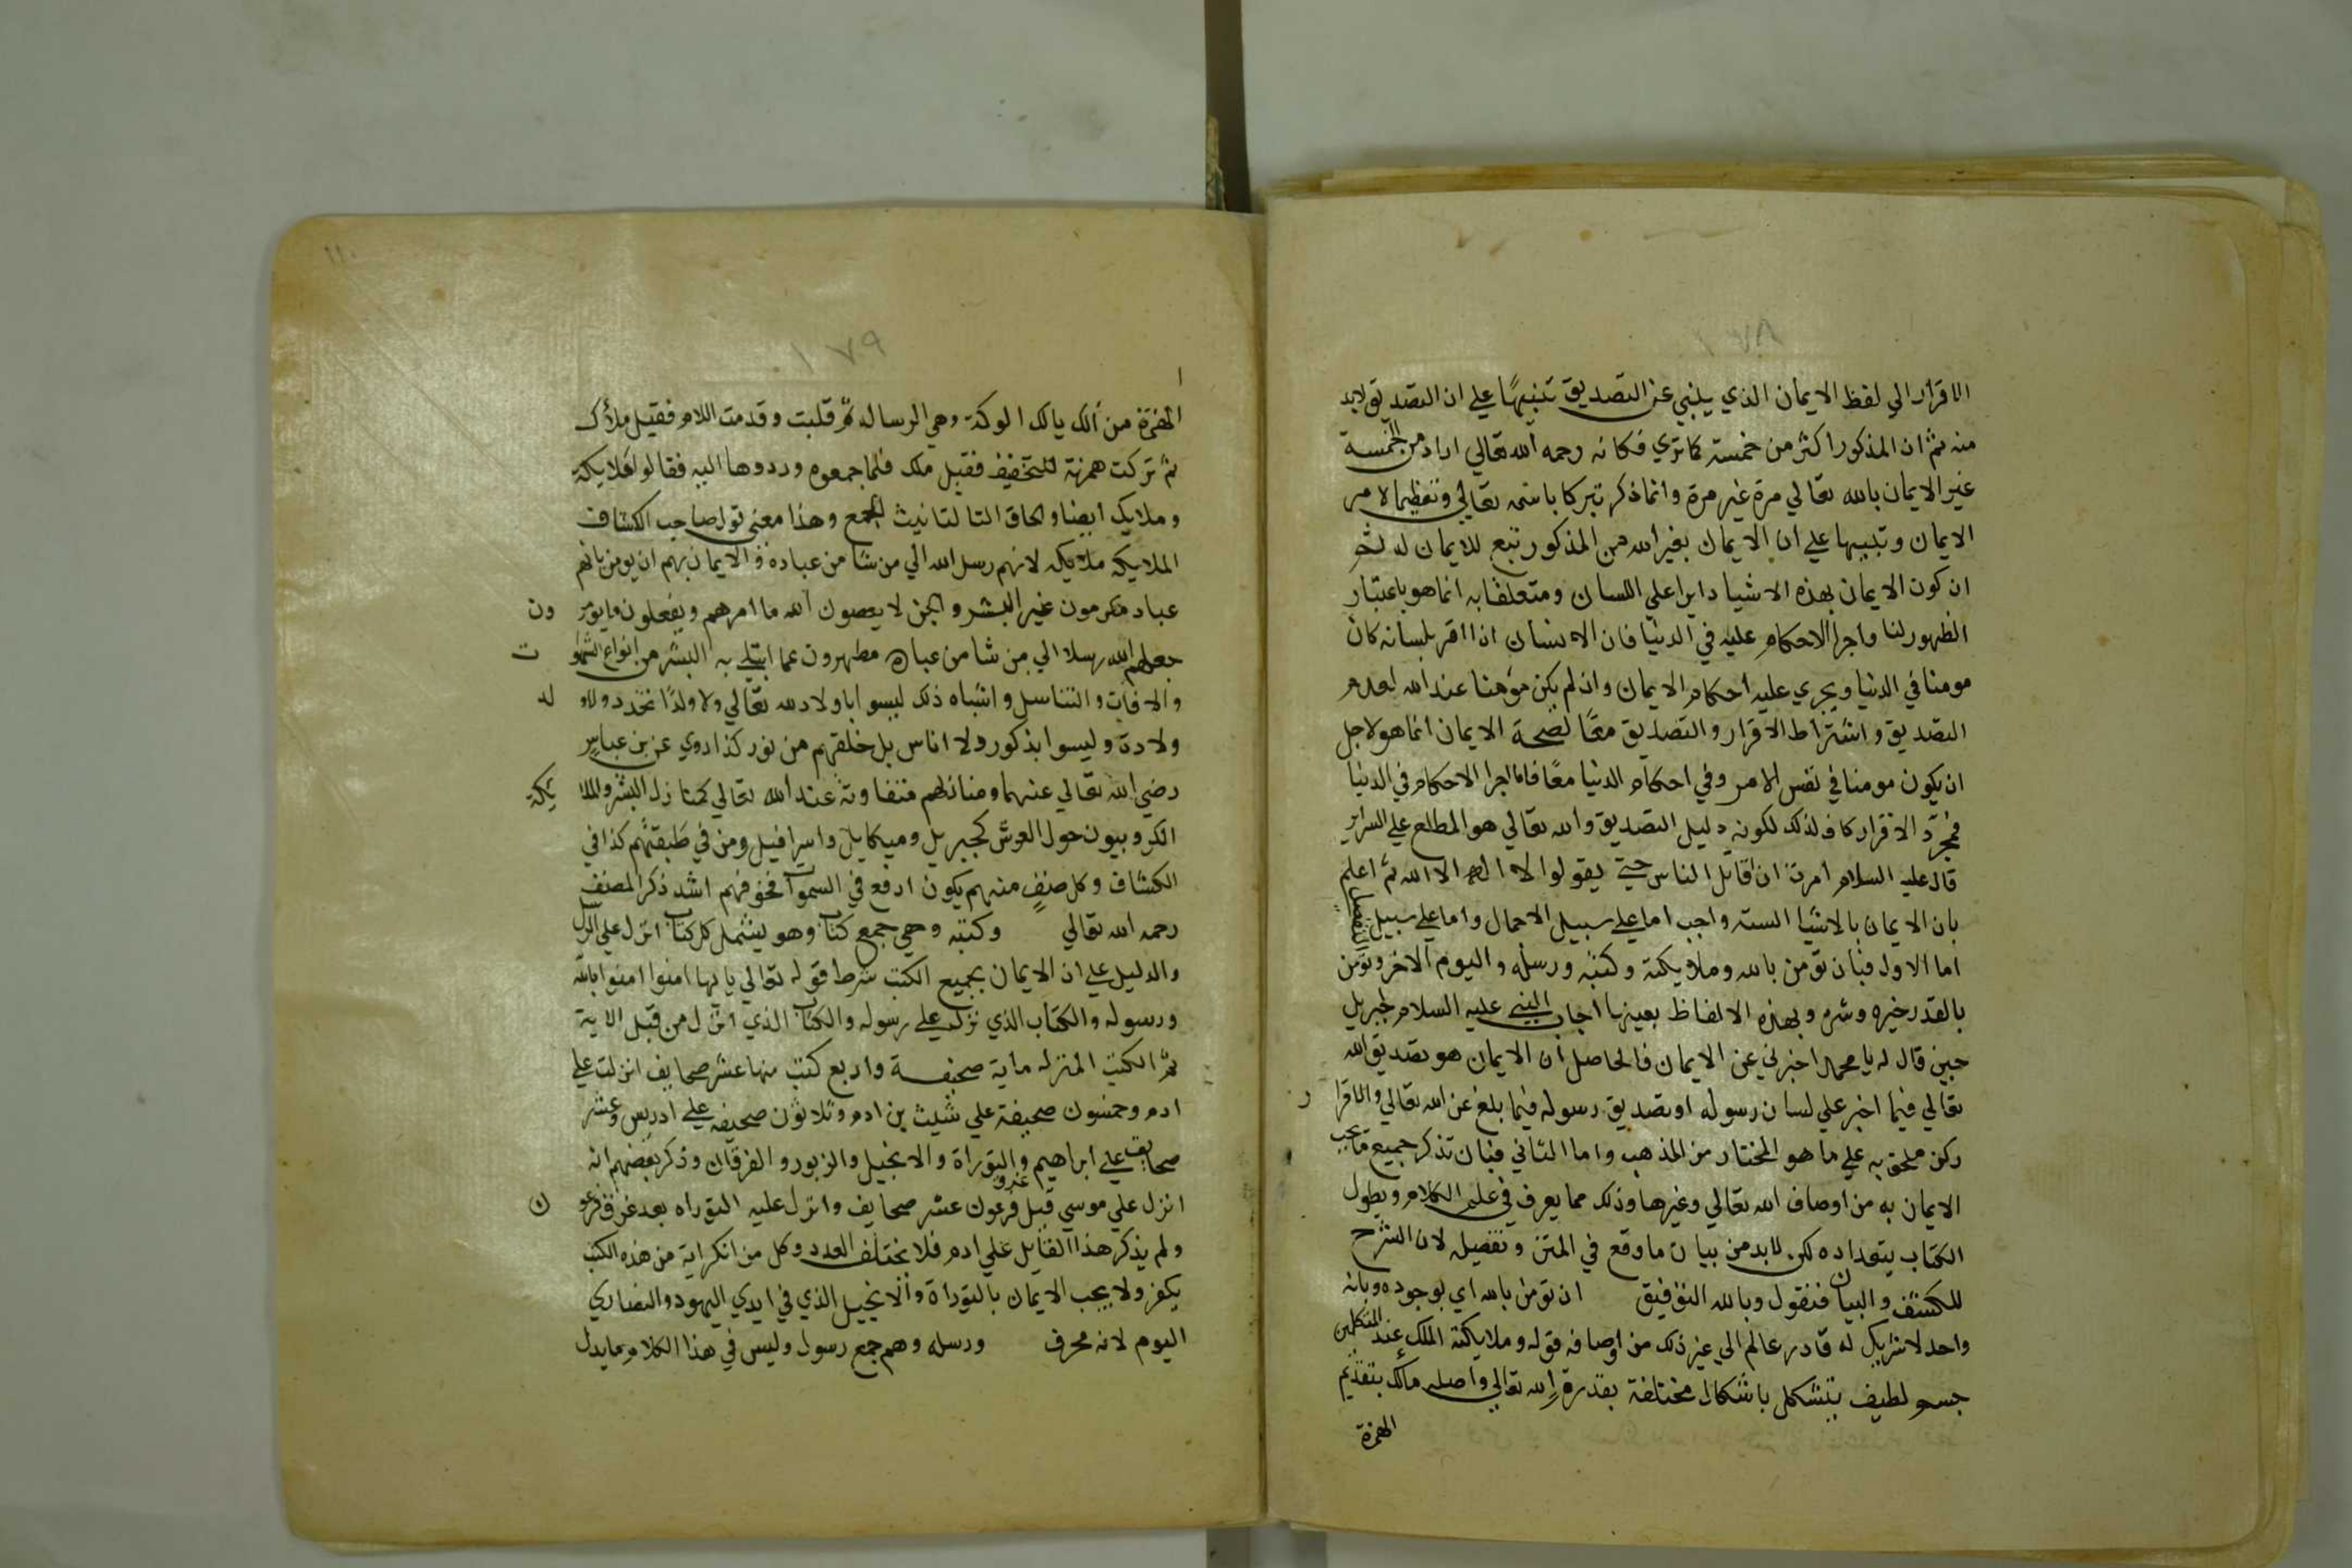 الاقرار الي لفظ الايمان الذي ينبي عن التصديق تنبيها علي ان التصديق لابد
منه ثم ان المذكور اكثر من خمسة كما تري فكانه رحمه الله تعالي اراد من الخمسة
غير الايمان بالله تعالي مرة غير مرة وانما ذكر تبركا باسمه تعالي وتعظيما لامر
الايمان وتنبيها علي ان الايمان بغير الله من المذكور تبع للايمان له ثم
ان كون الايمان بهذه الاشيا دايرا علي اللسان ومتعلقا به انما هو باعتبار
الظهور لنا واجرا الاحكام عليه في الدنيا فان الانسان اذا اقر بلسانه كان
مومنا في الدنيا ويجري عليه احكام الايمان وان لم يكن مؤمنا عند الله لعدم
التصديق واشتراط الاقرار والتصديق معًا لصحة الايمان انما هو لاجل
ان يكون مومنا في نفس الامر وفي احكام الدنيا معًا فاما اجرا الاحكام في الدنيا
فمجرّد الاقرار كاف لذلك لكونه دليل التصديق والله تعالي هو المطلع علي السراير
قال عليه السلام امرت ان اقاتل الناس حتي يقولوا لا اله الا الله ثم اعلم
بان الايمان بالاشيا الستة واجب اما علي سبيل الاجمال واما علي سبيل التفصيل
اما الاول فبان تؤمن بالله وملايكته وكتبه ورسله واليوم الاخر وتؤمن
بالقدر خيره وشره وبهذه الالفاظ بعينها اجاب النبي عليه السلام لجبريل
حين قال له يا محمد اخبرني عن الايمان فالحاصل ان الايمان هو تصديق الله
تعالي فيما اخبر علي لسان رسوله او تصديق رسوله فيما بلغ عن الله تعالي والاقرا ر
ركن ملحق به علي ما هو المختار من المذهب واما الثاني فبان تذكر جميع ما يجب
الايمان به من اوصاف الله تعالي وغيرها وذلك مما يعرف في علم الكلام ويطول
الكتاب بتعداده لكن لابد من بيان ما وقع في المتن وتفصيله لان الشرح
للكشف والبيان فنقول وبالله التوفيق ان تؤمن بالله اي بوجوده وبانه
واحد لا شريك له قادر عالم الي غير ذلك من اوصافه قوله وملايكته الملك عند المتكلمين
جسم لطيف يتشكل باشكال مختلفة بقدرة الله تعالي واصله مألك بتقديم
الهمزة
١٧٩
الهمزة من ألك يالك الوكة وهي الرسالة ثم قلبت وقدمت اللام فقيل ملأك
ثم تركت همزته للتخفيف فقيل ملك فلما جمعوه وردوها اليه فقالوا ملايكة
وملايك ايضا والحاق التا لتانيث الجمع وهذا معني قول صاحب الكشاف
الملايكة ملايكة لانهم رسل الله الي من شا من عباده فالايمان بهم ان يومن بانهم
عباد مكرمون غير البشر والجن لا يعصون الله ما امرهم ويفعلون ما يومر ون
جعلهم الله رسلا الي من شا من عباده مطهرون عما ابتلي به البشر من انواع الشهوا ت
والافات والتناسل واشباه ذلك ليسوا باولاد لله تعالي ولا ولدًا تخذ دولاو لد
ولادة وليسوا بذكور ولا اناس بل خلقهم من نور كذا روي عن بن عباس
رضي الله تعالي عنهما ومنازلهم متفاوتة عند الله تعالي كمنازل البشر والملا يكة
الكروبيون حول العرش كجبريل وميكايل واسرافيل ومن في طبقتهم كذا في
الكشاف وكل صنف منهم يكون ارفع في السموات فخوفهم اشد ذكر المصنف
رحمه الله تعالي وكتبه وهي جمع كتاب وهو يشمل كل كتاب انزل علي الرسل
والدليل علي ان الايمان بجميع الكتب شرط قوله تعالي يا ايها امنوا امنوا بالله
ورسوله والكتاب الذي نزل علي رسوله والكتاب الذي انزل من قبل الاية
ثم الكتب المنزلة ماية صحيفة واربع كتب منها عشر صحايف انزلت علي
ادم وخمسون صحيفة علي شيث بن ادم وثلاثون صحيفة علي ادريس وعشر
صحايف علي ابراهيم والتوراة والانجيل والزبور والفرقان وذكر بعضهم انه
انزل علي موسي قبل غرق فرعون عشر صحايف وانزل عليه التوراه بعد غرق فرعو ن
ولم يذكر هذا القايل علي ادم فلا يختلف العدد وكل من انكر اية من هذه الكتب
يكفر ولا يجب الايمان بالتوراة والانجيل الذي في ايدي اليهود والنصاري
اليوم لانه محرف ورسله وهم جمع رسول وليس في هذا الكلام ما يدل